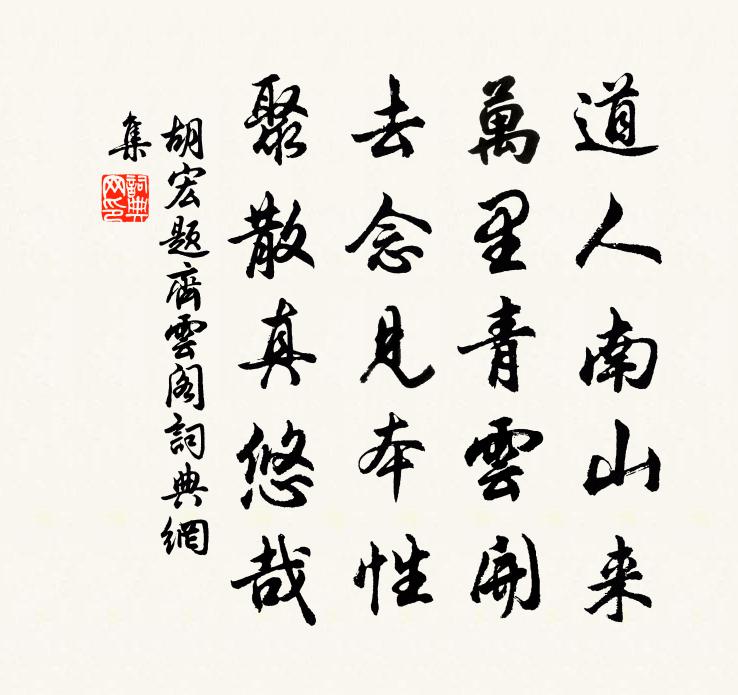 道人南山来
萬里青雲開
去念見本性
聚散真悠哉
胡宏題齊雲閣詞典網
集
詞典
网印